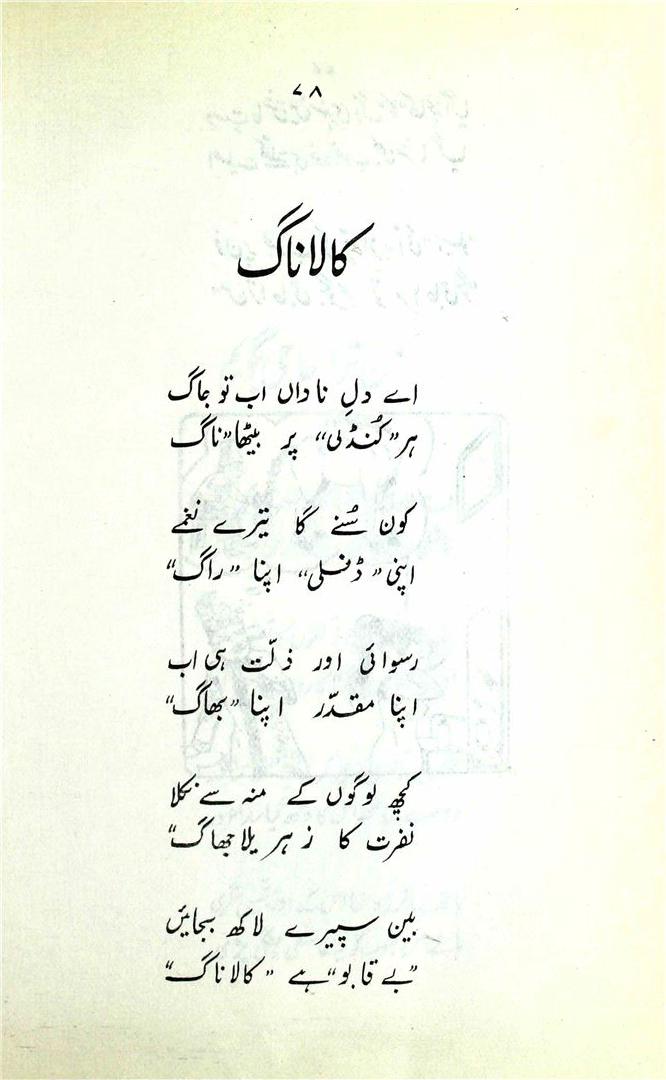 ۷۸
کالا ناگ
اے دلِ ناداں اب تو جاگ
ہر "کُنڈلی" پر بیٹھا "ناگ
کون سُنے گا تیرے نغمے
اپنی "ڈفلی" اپنا "راگ"
رسوائی اور ذلّت ہی اب
اپنا مقدّر اپنا "بھاگ"
کچھ لوگوں کے منہ سے نکلا
نفرت کا زہریلا جھاگ"
بین سپیرے لاکھ بجائیں
"بے قابو" ہے "کالا ناگ"